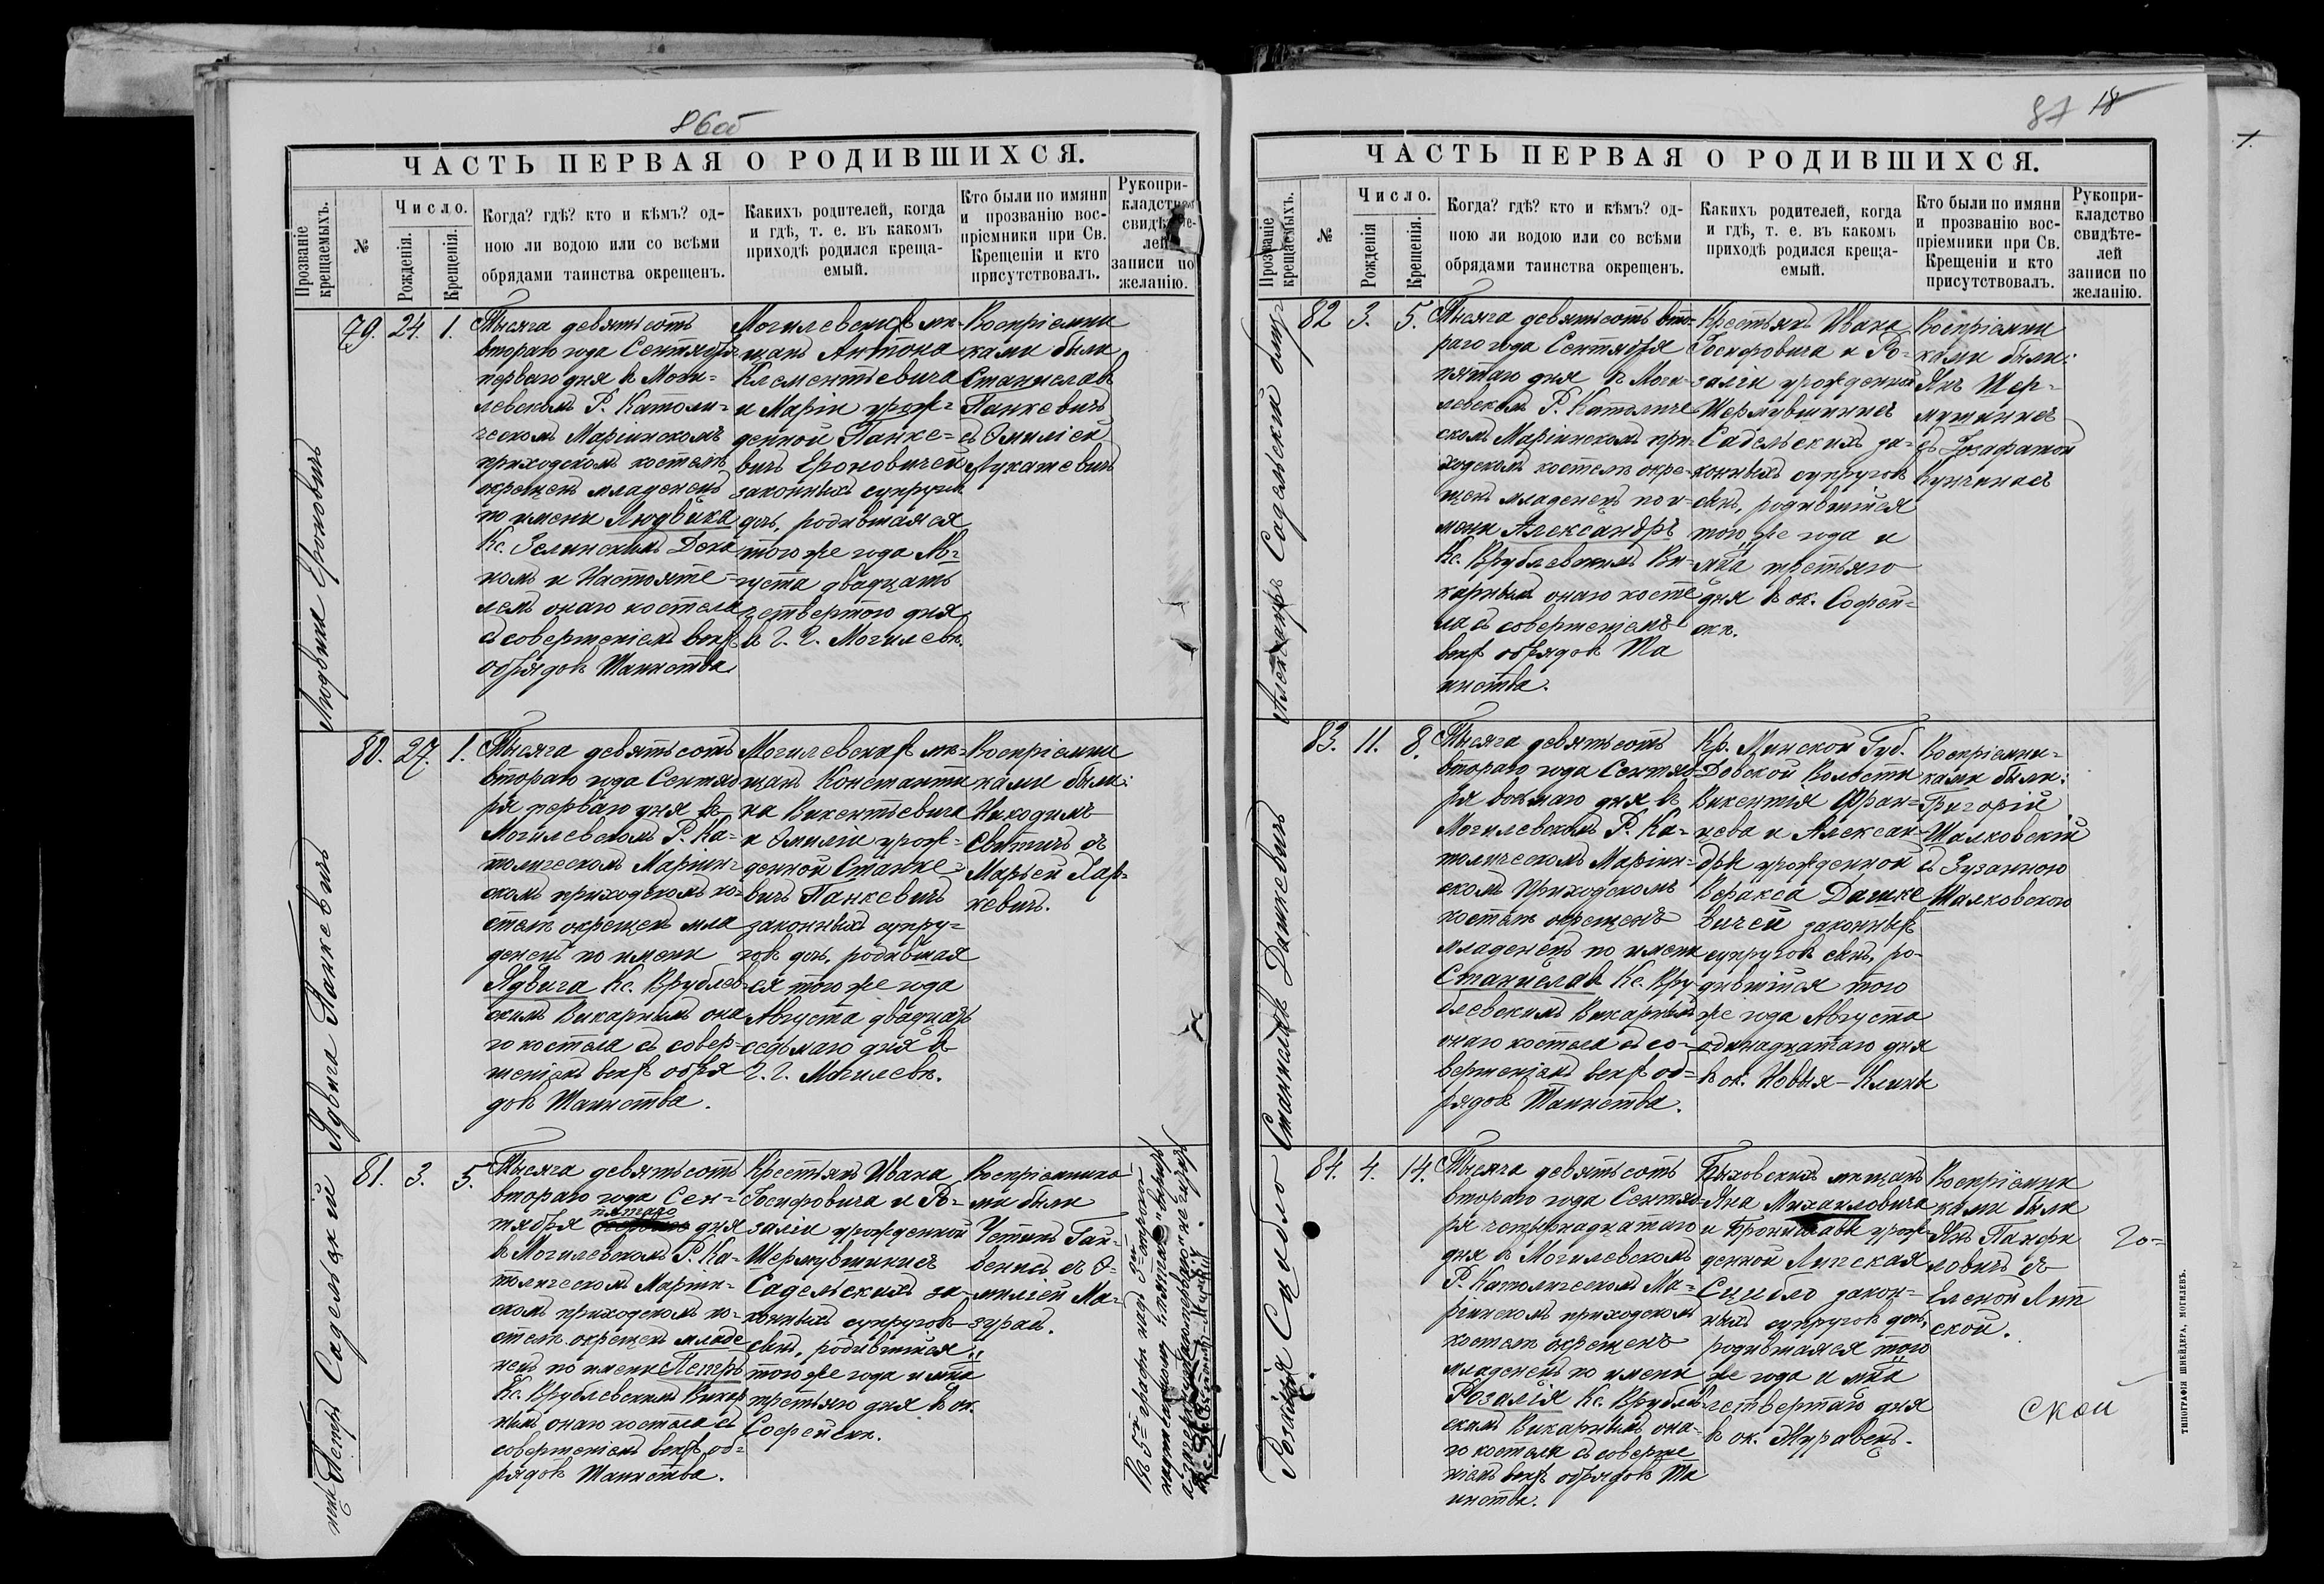 86об
ЧАСТЬ ПЕРВАЯ О РОДИВШИХСЯ.
Прозваніе крещаемыхъ.
№
Число.
Рожденія.
Крещенія.
Когда? гдѣ? кто и кѣмъ? од-
ною ли водою или со всѣми
обрядами таинства окрещенъ.
Какихъ родителей, когда
и гдѣ, т. е. въ какомъ
приходѣ родился креща-
емый.
Кто были по имяни
и прозванію вос-
пріемники при Св.
Крещеніи и кто
присутствовалъ.
Рукопри-
кладство
свидѣте-
лей
записи по
желанію.
Людвика Ероновичъ
79. 24. 1.
Тысяча девятьсотъ
втораго года Сентября
перваго дня въ Моги-
левскомъ Р. Католи-
ческомъ Маріинскомъ
приходскомъ костелѣ
окрещенъ младенецъ
по имени Людвика
Кс. Зелинскимъ Дека
номъ и Настояте-
лемъ онаго костела
съ совершеніемъ всѣхъ
обрядовъ Таинства
Могилевскихъ мѣ-
щанъ Антона
Клементьевича
и Маріи урож-
денной Панке-
вичъ Ероновичей
законныхъ супруговъ
дочь, родившаяся
того же года Ав-
густа двадцать
четвертого дня
въ г. г. Могилевѣ.
Воспріемни
ками были
Станиславъ
Панкевичъ
съ Эмиліей
Лукашевичъ
Ядвига Панкевичъ
80. 27. 1.
Тысяча девятьсотъ
втораго года Сентяб
ря перваго дня въ
Могилевскомъ Р. Ка-
толическомъ Марiин-
скомъ приходскомъ ко-
стелѣ окрещенъ мла
денецъ по имени
Ядвига Кс. Врублев-
скимъ Викарнымъ она
го костела съ совер-
шеніемъ всѣхъ обря
довъ Таинства.
Могилевскихъ мѣ-
щанъ Константи
на Викентьевича
и Эмиліи урож-
денной Станке-
вичъ Панкевичъ
законныхъ супру-
говъ дочь, родившая
ся того же года
Августа двадцать
седьмаго дня въ
г. г. Могилевѣ.
Воспріемни
ками были:
Никодимъ
Свѣтичъ съ
Марьей Хар-
кевичъ.
Петръ Садельскій
81. 3. 5.
Тысяча девятьсотъ
втораго года Сен-
тября пятаго дня
въ Могилевскомъ Р. Ка-
толическомъ Маріин-
скомъ приходскомъ ко-
стелѣ окрещенъ младе
нецъ по имени Петръ
Кс. Врублевскимъ Викар
нымъ онаго костела съ
совершеніемъ всѣхъ об-
рядовъ Таинства.
Крестьянъ Ивана
Іосифовича и Ро-
заліи урожденной
Шермувшникъ
Садельскихъ за-
конныхъ супруговъ
сынъ, родившійся
того же года и мѣца
третьяго дня въ ок.
Софейскѣ.
Воспріемника
ми были
Устинъ Гай-
венисъ съ Э-
миліей Ма-
зурасъ.
Въ 5й графѣ надъ 3ей строкой
87 18
ЧАСТЬ ПЕРВАЯ О РОДИВШИХСЯ.
Прозваніе крещаемыхъ.
№
Число.
Рожденія
Крещенія.
Когда? гдѣ? кто и кѣмъ? од-
ною ли водою или со всѣми
обрядами таинства окрещенъ.
Какихъ родителей, когда
и гдѣ, т. е. въ какомъ
приходѣ родился креща-
емый.
Кто были по имяни
и прозванію вос-
пріемники при Св.
Крещеніи и кто
присутствовалъ.
Рукопри-
кладство
свидѣте-
лей
записи по
желанію.
Александръ Садельскій
82 3. 5.
Тысяча девятьсотъ вто-
раго года Сентября
пятаго дня въ Моги-
левскомъ Р. Католиче
скомъ Маріинскомъ при-
ходскомъ костелѣ окре-
щенъ младенецъ по и-
мени Александръ
Кс. Врублевскимъ Ви-
карнымъ онаго косте
ла съ совершеніемъ
всѣхъ обрядовъ Та
инства.
Крестьянъ Ивана
Іосифовича и Ро-
заліи урожденной
Шермувшникъ
Садельскихъ за-
конныхъ супруговъ
сынъ, родившійся
того же года и
мѣца третьяго
дня въ ок. Софей-
скѣ.
Воспріемни
ками были:
Янъ Шер-
мушникъ
съ Іозафатой
Кунчинасъ
Станиславъ Дашкевичъ
83. 11. 8.
Тысяча девятьсотъ
втораго года Сентяб-
ря восьмаго дня въ
Могилевскомъ Р. Ка-
толическомъ Маріин-
скомъ Приходскомъ
костелѣ окрещенъ
младенецъ по имени
Станиславъ Кс. Вру
блевскимъ Викарнымъ
онаго костела съ со-
вершеніемъ всѣхъ об-
рядовъ Таинства.
Кр. Минской Губ.
Довской Волости
Викентія Фран-
цева и Алексан-
дры урожденной
Веракса Дашке
вичей законныхъ
супруговъ сынъ, ро-
дившійся того
же года Августа
одинадцатаго дня
въ ок. Новыя-Клины
Воспріемни-
ками были:
Григорій
Шалковскій
съ Зузанною
Шалковскою
Розалія Сцибло
84. 4. 14.
Тысяча девятьсотъ
втораго года Сентяб-
ря четырнадцатаго
дня въ Могилевскомъ
Р. Католическомъ Ма-
ріинскомъ приходскомъ
костелѣ окрещенъ
младенецъ по имени
Розалія Кс. Врублев-
скимъ Викарнымъ она-
го костела съ соверше
ніемъ всѣхъ обрядовъ Та
инства.
Быховскихъ мѣщанъ
Яна Михайловича
и Брониславы урож-
денной Липская
Сцибло закон-
ныхъ супруговъ дочь,
родившаяся того
же года и мѣца
четвертаго дня
въ ок. Журавецъ.
Воспріемни
ками были
Янъ Панфи
ловичъ съ
Еленой Лип
ской.
го-
ской
ТИПОГРАФІЯ ШНЕЙДЕРА, МОГИЛЕВЪ.